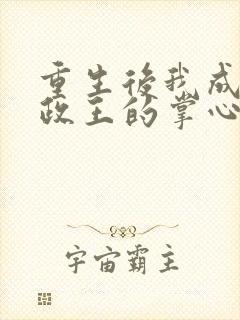 重生後我成
政王的掌心
宇宙霸主